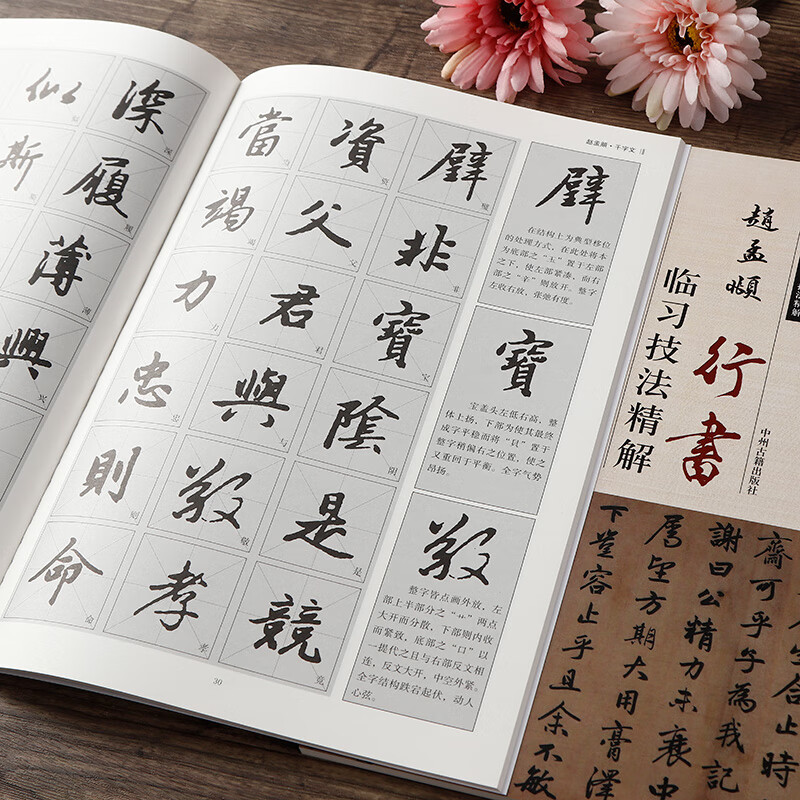 深
履
薄
興
似
斯
赵孟頫·千字文
璧
非
寶
陰
是
競
資
父
君
與
敬
孝
當
竭
力
忠
則
命
璧
在结构上为典型移位
的处理方式，在此处将本
为底部之“玉”置于左部
之下，使左部紧凑，而右
部之“辛”则放开。整字
左收右放，张弛有度。
寶
宝盖头左低右高，整
体上扬，下部为使其最终
成字平稳而将“贝”置于
整字稍偏右之位置，使之
又重回于平衡。全字气势
昂扬。
敬
整字皆点画外放，左
部上半部分之“艹”两点
大开而分散，下部则内收
而紧致，底部之“口”以
一提代之且与右部反文相
连，反文大开，中空外紧。
全字结构跌宕起伏，动人
心弦。
30
趙孟頫
行書
临习技法精解
中州古籍出版社
生合止時
齋可乎子為我記
謝曰公精力未衰中
属望方期大用膏澤
下豈容止乎且余不敏